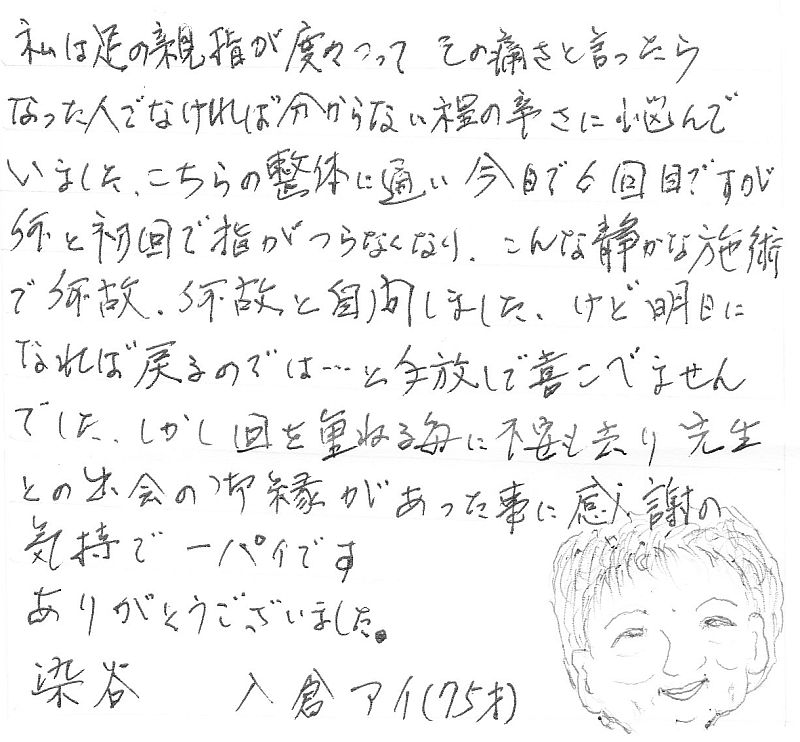 私は足の親指が度々つって その痛さと言ったら
なった人でなければ分からない程の辛さに悩んで
いました、こちらの整体に通い 今日で6回目ですが
何と初回で指がつらなくなり、こんな静かな施術
で何故、何故と自問しました、けど明日に
なれば戻るのでは…と手放しで喜こべません
でした、しかし回を重ねる毎に不安も去り 先生
との出会の御縁があった事に感謝の
気持で一パイです
ありがとうございました。
染谷 入倉アイ(75才)